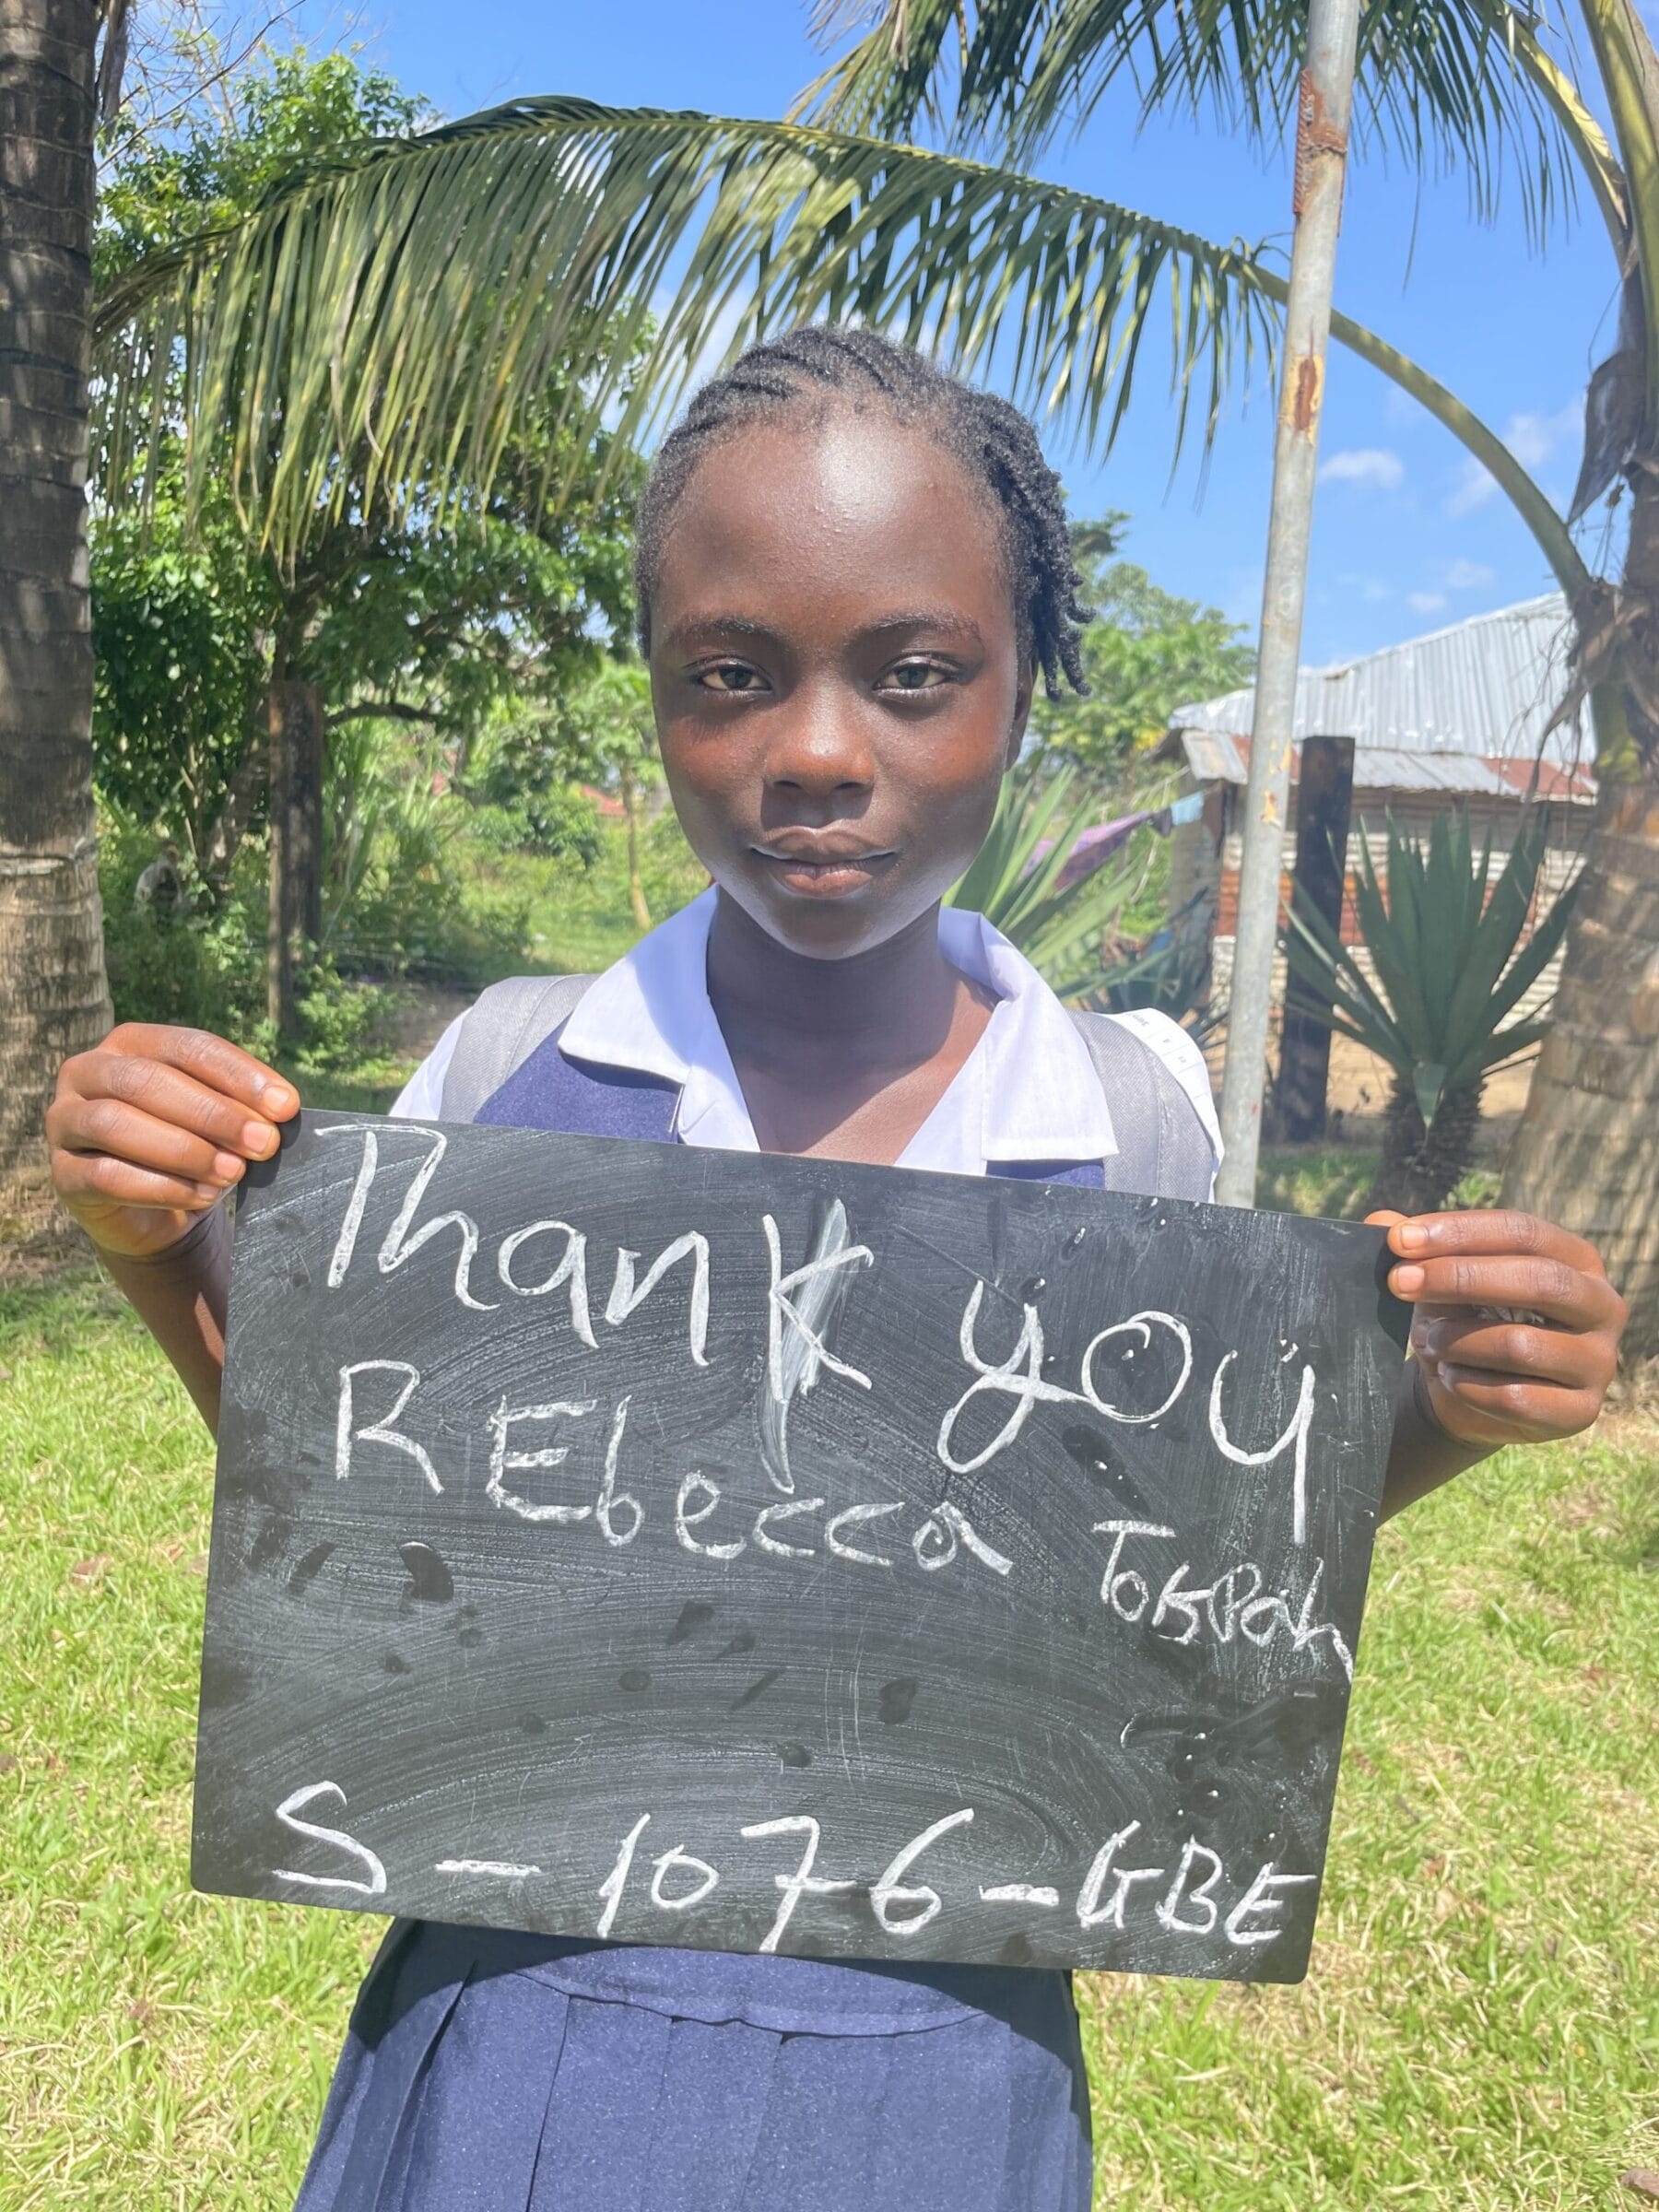 Thank you
REbecca
S-1076-GBE